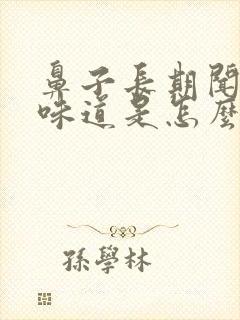 鼻子長期聞
味道是怎麼
孫學林